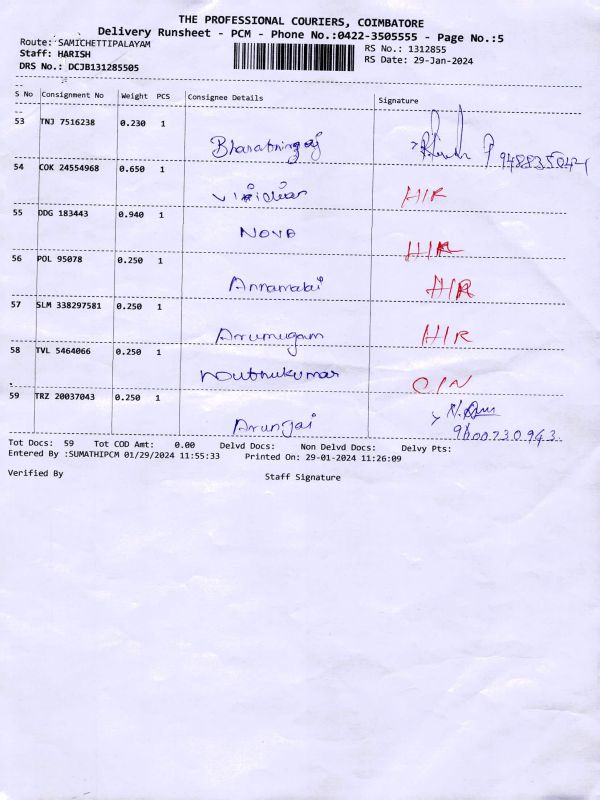 THE PROFESSIONAL COURIERS, COIMBATORE
Delivery Runsheet - PCM - Phone No.:0422-3505555 - Page No.:5
Route: SAMICHETTIPALAYAM RS No.: 1312855
Staff: HARISH RS Date: 29-Jan-2024
DRS No.: DCJB131285505
S No Consignment No Weight PCS Consignee Details Signature
53 TNJ 7516238 0.230 1
54 COK 24554968 0.650 1
H/R
55 DDG 183443 0.940 1 NOVA
H/R
56 POL 95078 0.250 1
Annamalai H/R
57 SLM 338297581 0.250 1
Arumugam H/R
58 TVL 5464066 0.250 1
O/N
59 TRZ 20037043 0.250 1
Arunjai
9600730943
Tot Docs: 59 Tot COD Amt: 0.00 Delvd Docs: Non Delvd Docs: Delvy Pts:
Entered By :SUMATHIPCM 01/29/2024 11:55:33 Printed On: 29-01-2024 11:26:09
Verified By Staff Signature